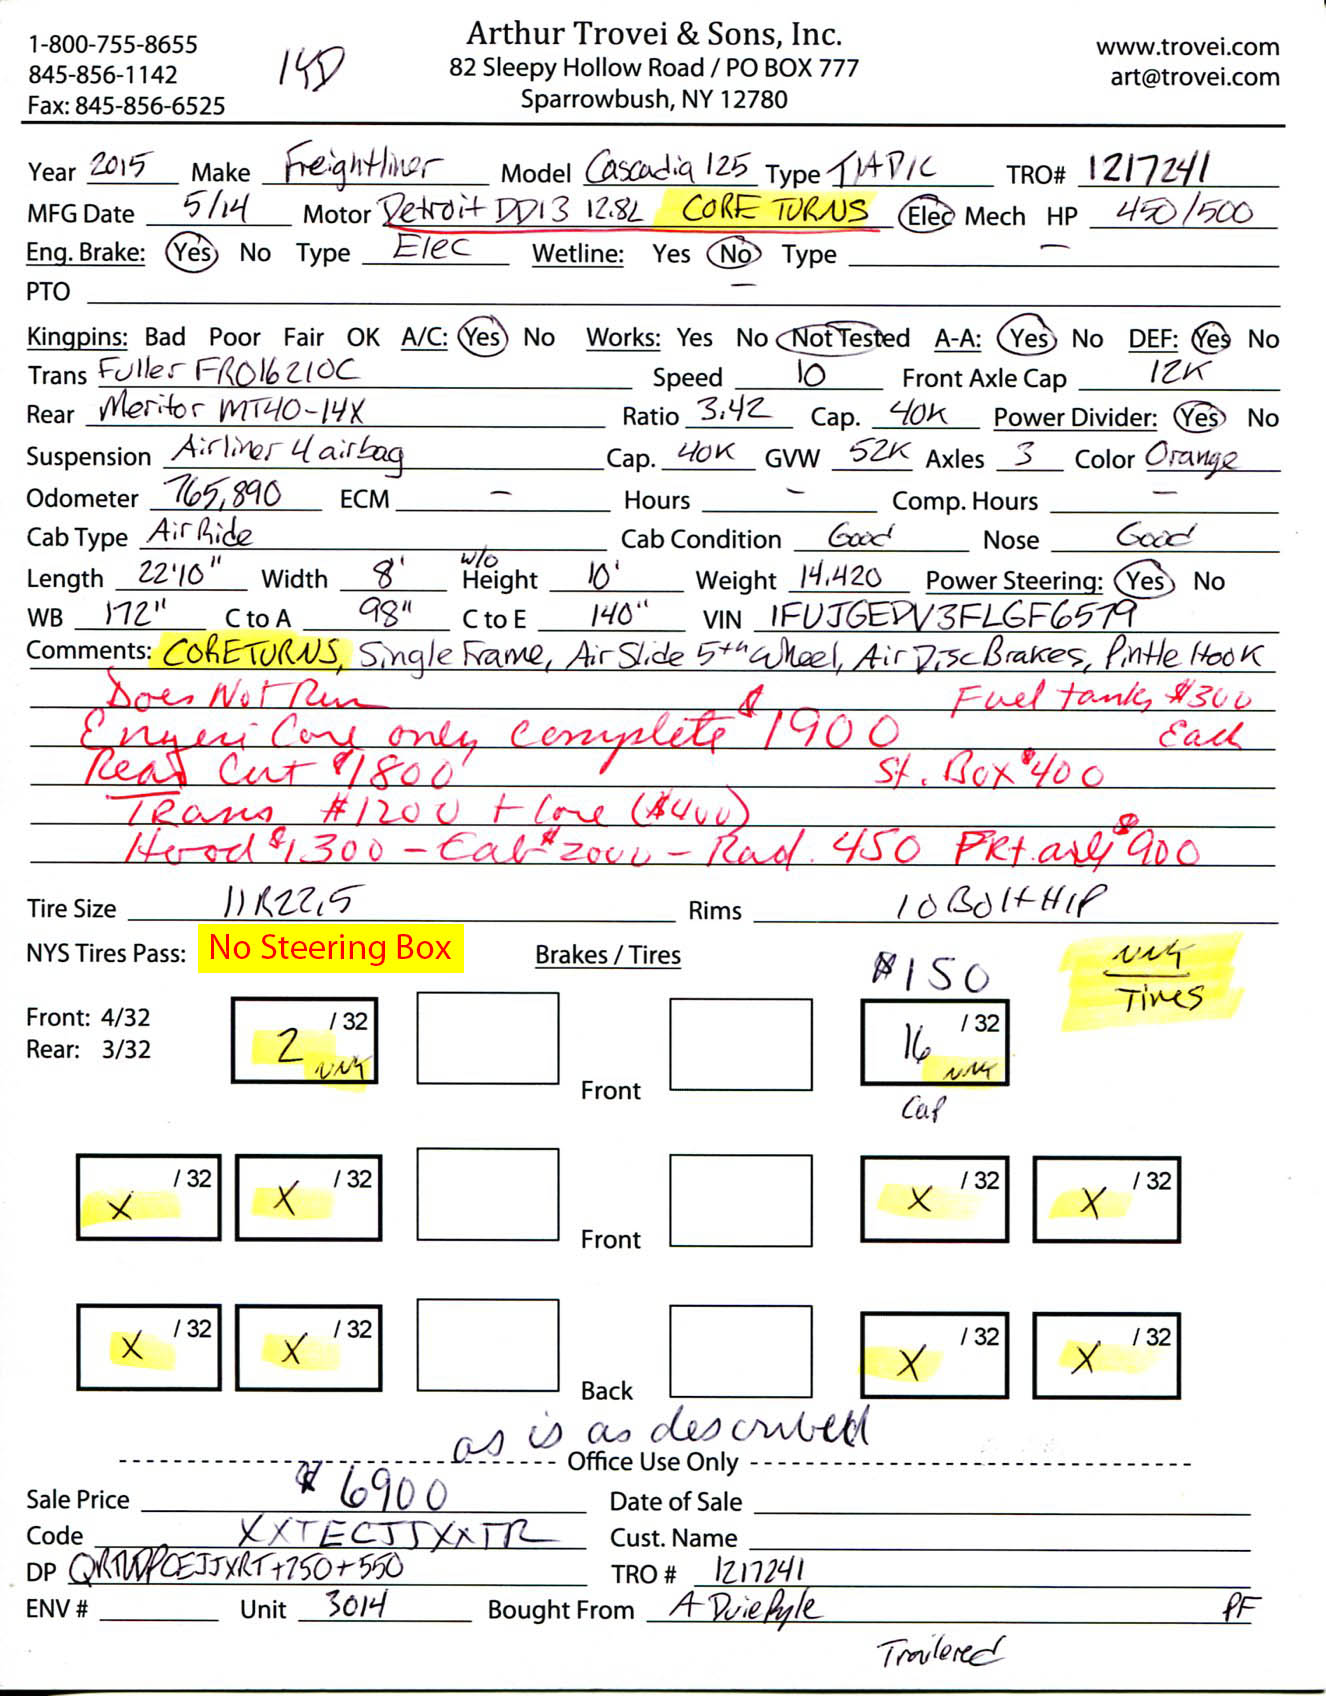 1-800-755-8655
845-856-1142
Fax: 845-856-6525
14D
Arthur Trovei & Sons, Inc.
82 Sleepy Hollow Road / PO BOX 777
Sparrowbush, NY 12780
www.trovei.com
art@trovei.com
Year 2015 Make Freightliner Model Cascadia 125 Type T/A D/C TRO# 1217241
MFG Date 5/14 Motor Detroit DD13 12.8L CORE TURNS Elec Mech HP 450/500
Eng. Brake: Yes No Type Elec Wetline: Yes No Type —
PTO —
Kingpins: Bad Poor Fair OK A/C: Yes No Works: Yes No Not Tested A-A: Yes No DEF: Yes No
Trans Fuller FRO16210C Speed 10 Front Axle Cap 12K
Rear Meritor MT40-14X Ratio 3.42 Cap. 40K Power Divider: Yes No
Suspension Airliner 4 airbag Cap. 40K GVW 52K Axles 3 Color Orange
Odometer 765,890 ECM — Hours — Comp. Hours —
Cab Type Air Ride Cab Condition Good Nose Good
Length 22'10" Width 8' w/o Height 10' Weight 14,420 Power Steering: Yes No
WB 172" C to A 98" C to E 140" VIN 1FUJGEDV3FLGF6579
Comments: CORE TURNS, Single Frame, Air Slide 5th Wheel, Air Disc Brakes, Pintle Hook
Does Not Run Fuel tanks $300
Engine Core only complete $1900 Each
Rear Cut $1800 St. Box $400
Trans $1200 + Core ($400)
Hood $1300 - Cab $2000 - Rad. 450 Frt. axle $900
Tire Size 11R22.5 Rims 10 Bolt H/P
NYS Tires Pass: No Steering Box Brakes / Tires $150
Tires
Front: 4/32
Rear: 3/32
2 /32 16 /32
Front
Cap
X /32 X /32 X /32 X /32
Front
X /32 X /32 X /32 X /32
Back
as is as described
Office Use Only
Sale Price $6900 Date of Sale
Code XXTECJJXXTR Cust. Name
DP +250+550 TRO # 1217241
ENV # Unit 3014 Bought From A Duie Pyle PF
Trailered